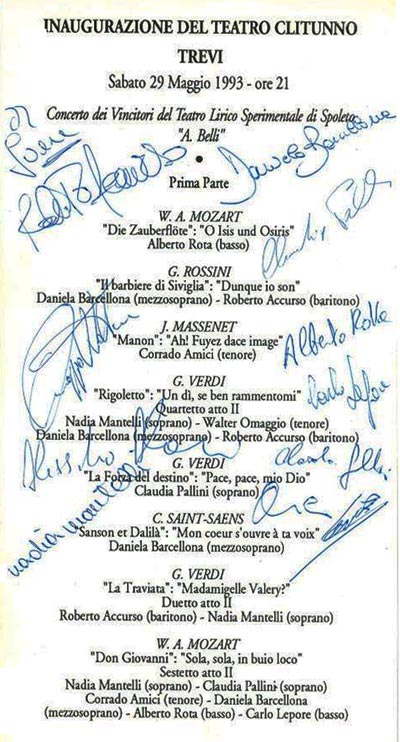 INAUGURAZIONE DEL TEATRO CLITUNNO
TREVI
Sabato 29 Maggio 1993 - ore 21
Concerto dei Vincitori del Teatro Lirico Sperimentale di Spoleto
"A. Belli"
Daniela Barcellona
Prima Parte
W. A. MOZART
"Die Zauberflöte": "O Isis und Osiris"
Alberto Rota (basso)
G. ROSSINI
"Il barbiere di Siviglia": "Dunque io son"
Daniela Barcellona (mezzosoprano) - Roberto Accurso (baritono)
J. MASSENET
"Manon": "Ah! Fuyez dace image"
Corrado Amici (tenore)
Alberto Rota
G. VERDI
"Rigoletto": "Un dì, se ben rammentomi"
Quartetto atto II
Nadia Mantelli (soprano) - Walter Omaggio (tenore)
Daniela Barcellona (mezzosoprano) - Roberto Accurso (baritono)
Carlo Lepore
G. VERDI
"La Forza del destino": "Pace, pace, mio Dio"
Claudia Pallini (soprano)
nadia mantelli
C. SAINT-SAENS
"Sanson et Dalilà": "Mon coeur s'ouvre à ta voix"
Daniela Barcellona (mezzosoprano)
G. VERDI
"La Traviata": "Madamigelle Valery?"
Duetto atto II
Roberto Accurso (baritono) - Nadia Mantelli (soprano)
W. A. MOZART
"Don Giovanni": "Sola, sola, in buio loco"
Sestetto atto II
Nadia Mantelli (soprano) - Claudia Pallini (soprano)
Corrado Amici (tenore) - Daniela Barcellona
(mezzosoprano) - Alberto Rota (basso) - Carlo Lepore (basso)